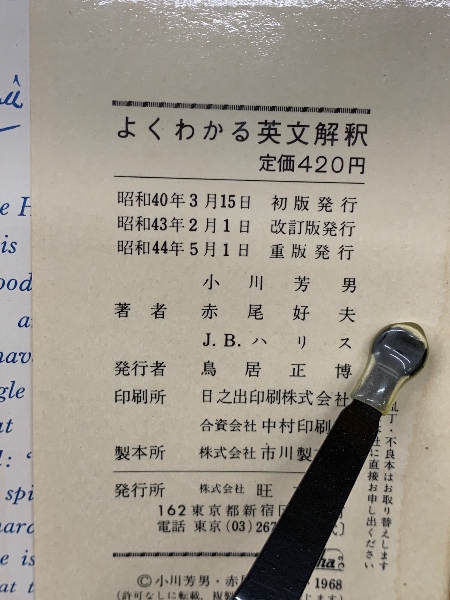 よくわかる英文解釈
定価420円
昭和40年3月15日 初版発行
昭和43年2月1日 改訂版発行
昭和44年5月1日 重版発行
小川芳男
著者 赤尾好夫
J.B.ハリス
発行者 鳥居正博
印刷所 日之出印刷株式会
合資会社 中村印刷
製本所 株式会社 市川製
発行所 株式会社 旺
162 東京都新宿区
電話 東京(03)267
© 小川芳男・赤尾 1968
(許可なしに転載, 複製
乱丁・不良本はお取り替えします
社に直接お申し出ください
is
ood
a
nav
gle
at
spi
hard
e is
at t